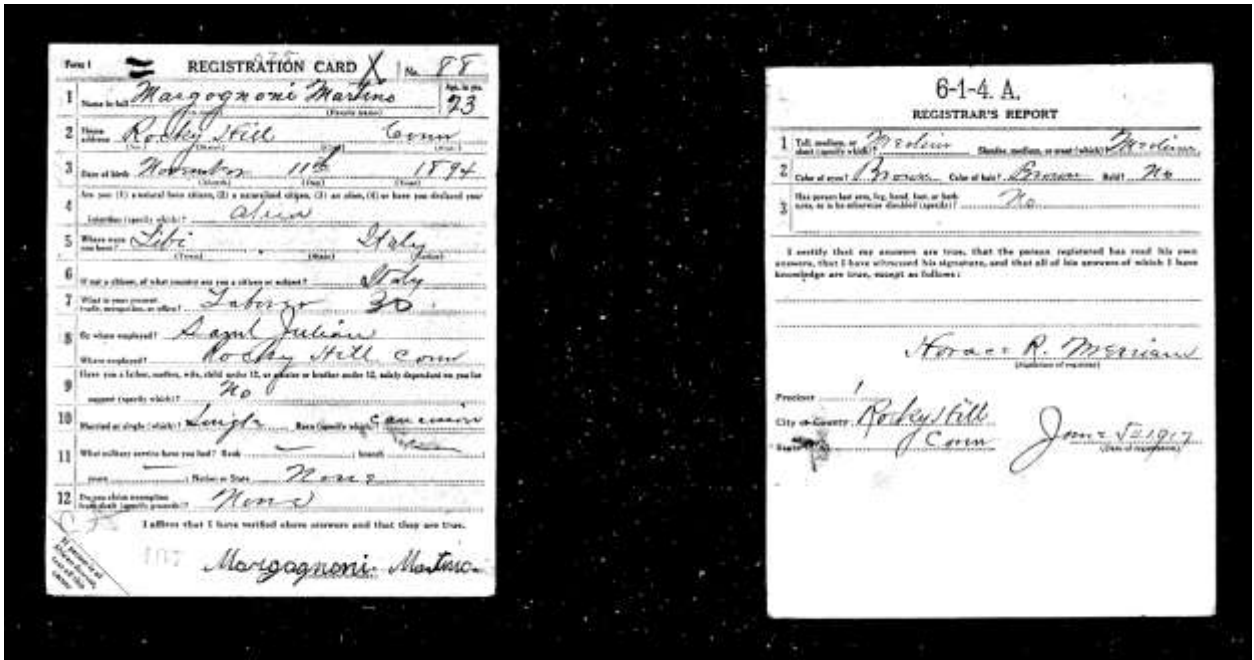 Form 1 REGISTRATION CARD X No. 88
1 Name in full Margognoni Martino Age, in yrs. 23
(Family name)
2 Home address Rocky Hill Conn
(No.) (Street) (City) (State)
3 Date of birth November 11th 1894
(Month) (Day) (Year)
Are you (1) a natural born citizen, (2) a naturalized citizen, (3) an alien, (4) or have you declared your
4 intention (specify which)? alien
5 Where were you born? Italy
(Town) (State) (Nation)
6 If not a citizen, of what country are you a citizen or subject? Italy
7 What is your present trade, occupation, or office? Laborer 30
8 By whom employed? Saml Julian
Where employed? Rocky Hill Conn
9 Have you a father, mother, wife, child under 12, or a sister or brother under 12, solely dependent on you for
support (specify which)? No
10 Married or single (which)? Single Race (specify which)?
11 What military service have you had? Rank — ; branch
years — ; Nation or State None
12 Do you claim exemption from draft (specify grounds)? None
I affirm that I have verified above answers and that they are true.
Margagnoni Martino
6-1-4. A.
REGISTRAR'S REPORT
1 Tall, medium, or short (specify which)? Medium Slender, medium, or stout (which)? Medium
2 Color of eyes? Brown Color of hair? Brown Bald? No
3 Has person lost arm, leg, hand, foot, or both eyes, or is he otherwise disabled (specify)? No
I certify that my answers are true, that the person registered has read his own
answers, that I have witnessed his signature, and that all of his answers of which I have
knowledge are true, except as follows:
Horace R. Merriam
(Signature of registrar)
Precinct 1
City or County Rocky Hill
State Conn June 5 1917
(Date of registration)